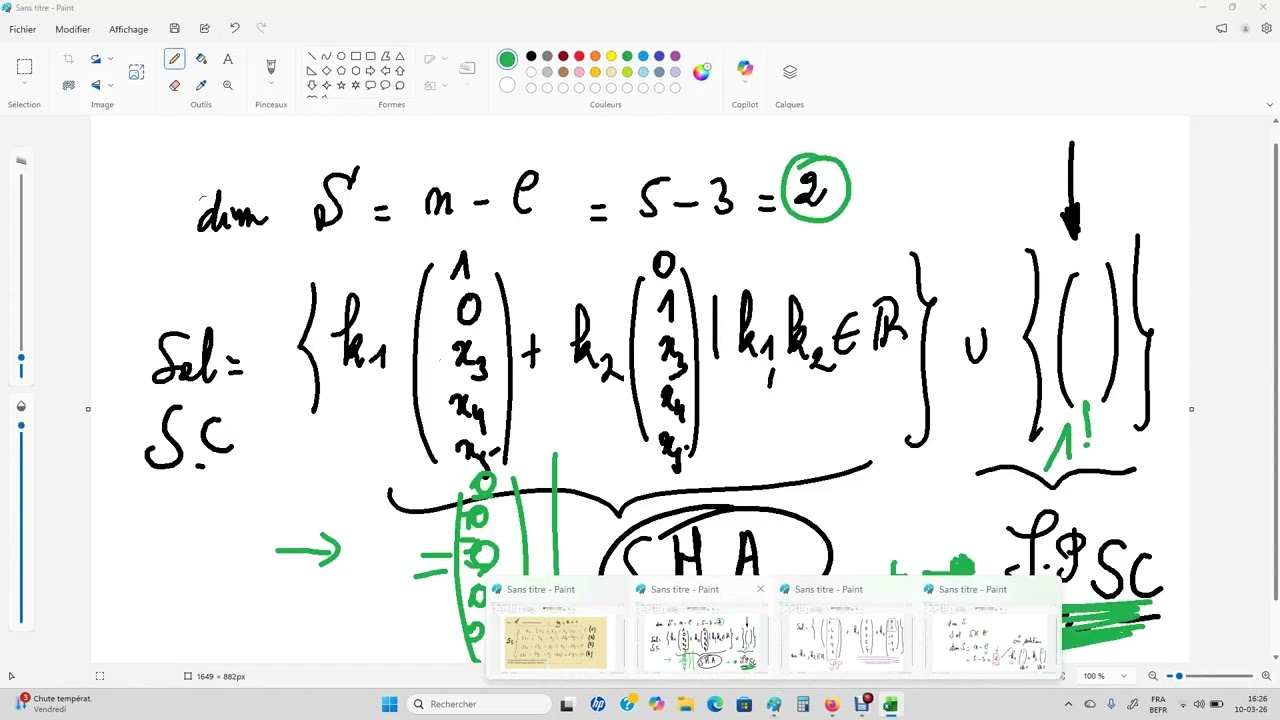 Sans titre - Paint
Fichier Modifier Affichage
Sélection Image Outils Pinceaux Formes Couleurs Copilot Calques
dim S = n - e = 5 - 3 = 2
Sol = { k1 ( 1 0 x3 x4 x5 ) + k2 ( 0 1 x3 x4 x5 ) | k1, k2 ∈ ℝ } ∪ { ( ) }
S.C
1!
→ = 0 0 0 0 0
SHA
S.P SC
Sans titre - Paint Sans titre - Paint Sans titre - Paint Sans titre - Paint
1649 × 882px
100 %
3 Chute températ.
Vendredi
Rechercher
FRA
BEFR
16:26
10-03-26